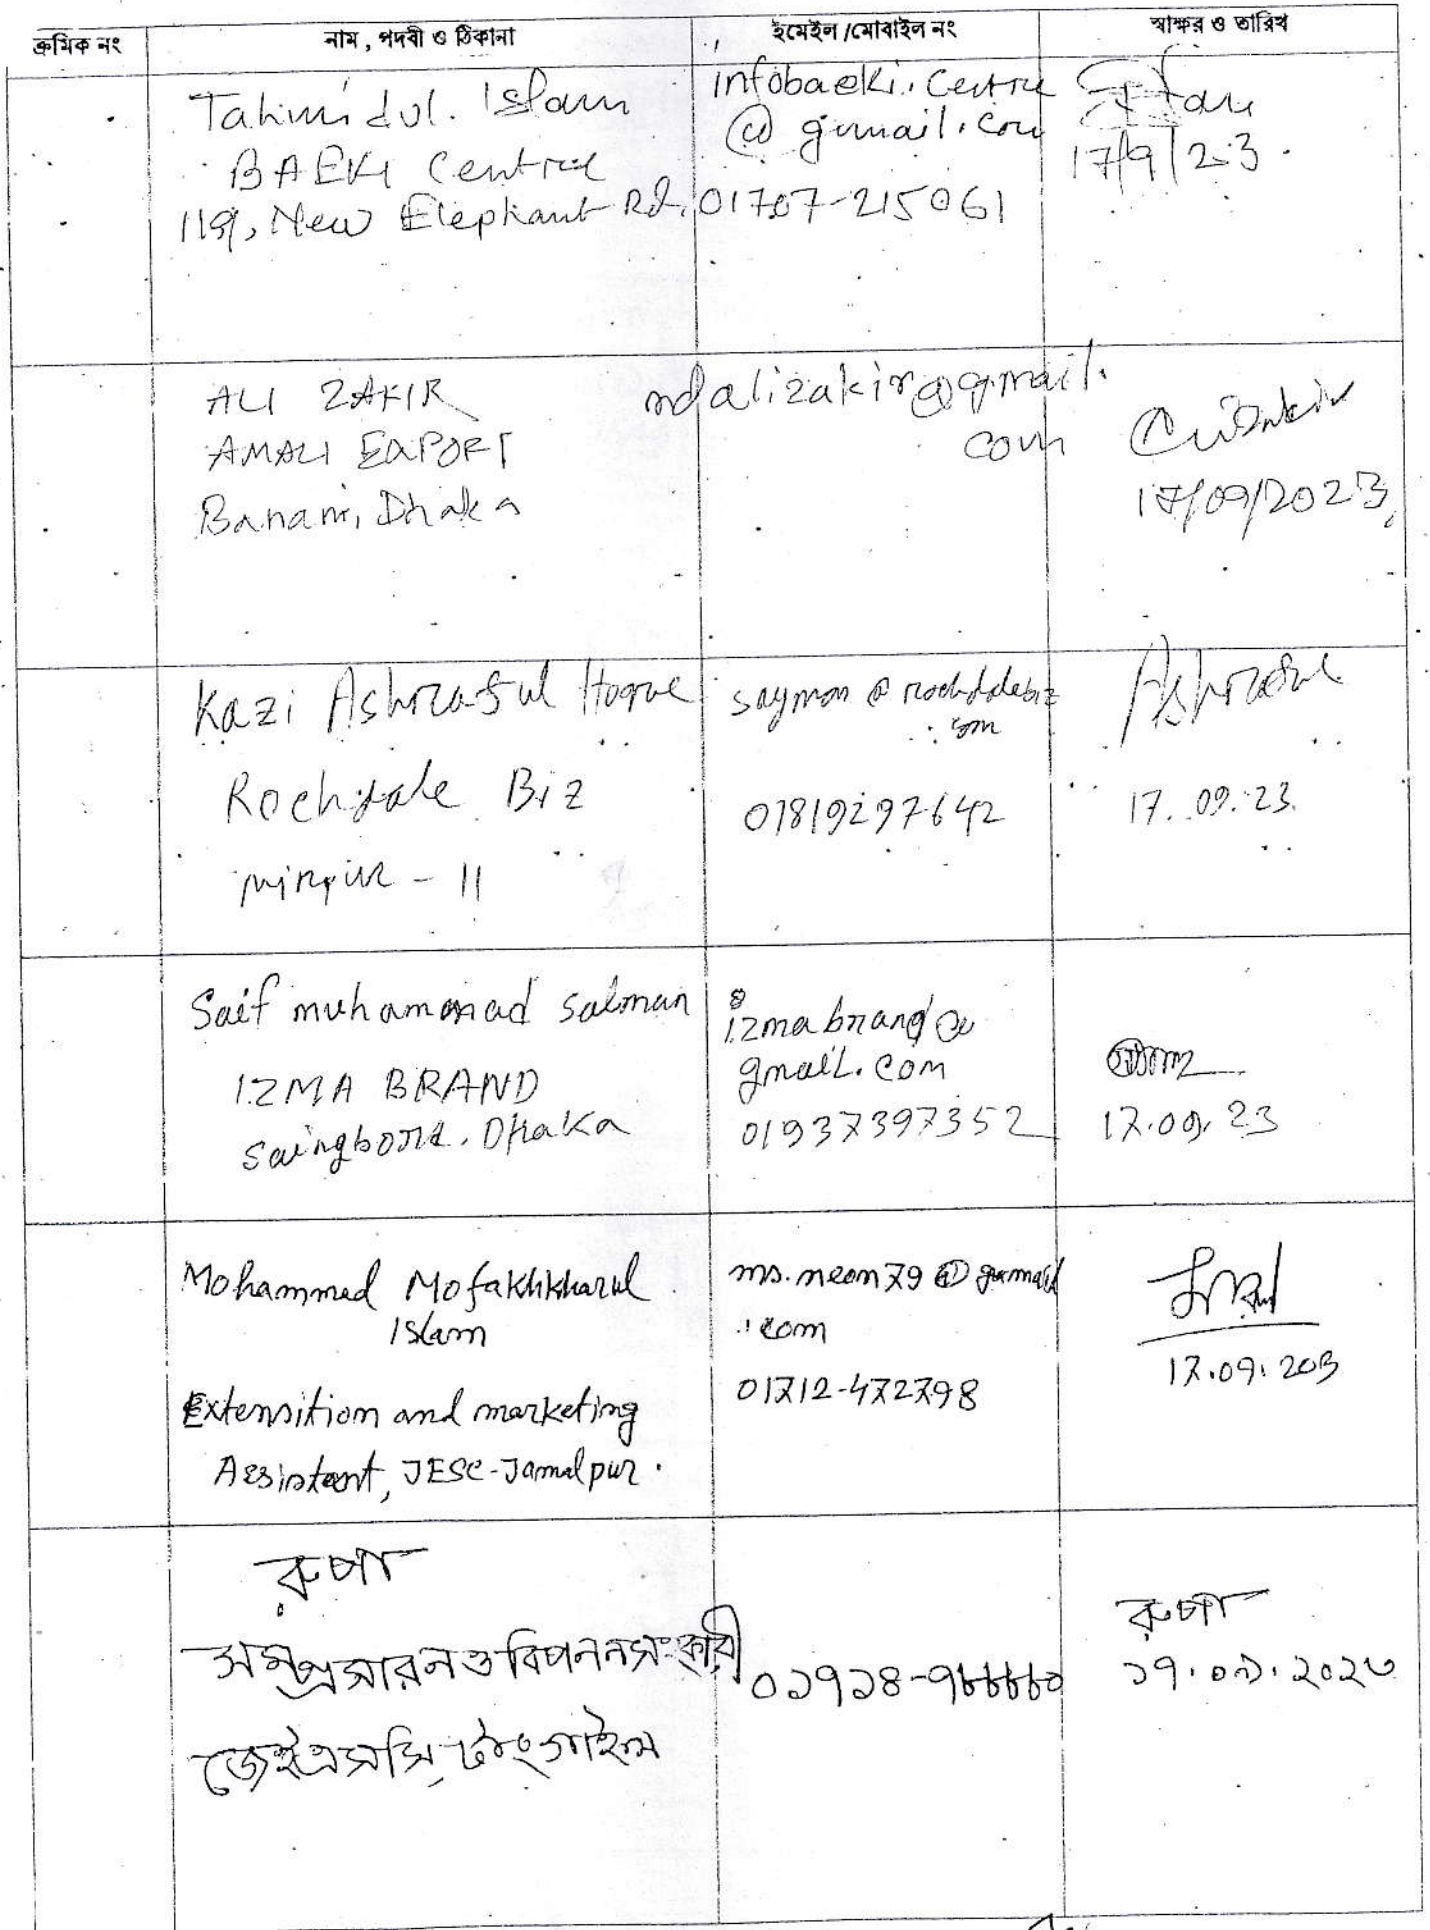 ক্রমিক নং
নাম, পদবী ও ঠিকানা
ইমেইল/মোবাইল নং
স্বাক্ষর ও তারিখ
Tahmidul. Islam
BAEKI Centre
119, New Elephant Rd.
infobaeki.centre
@gmail.com
01707-215061
17/9/23
ALI ZAKIR
AMALI EXPORT
Banani, Dhaka
mdalizakir@gmail.
com
17/09/2023
Kazi Ashraful Hoque
Rochdale Biz
mirpur - 11
saymon@rochdalebiz
.com
01819297642
Ashraful
17.09.23.
Saif muhammad salman
IZMA BRAND
Saingbord. Dhaka
izmabrand@
gmail.com
01937397352
17.09.23
Mohammed Mofakhkharul
Islam
Extensition and marketing
Assistant, JESC-Jamalpur.
ms.neon79@gmail
.com
01712-472798
17.09.203
রুপা
সম্প্রসারন ও বিপনন সহকারী
জেইএসসি, টাংগাইল
০১৭১৪-৭৮৮৮৮০
রুপা
১৭.০৯.২০২৩